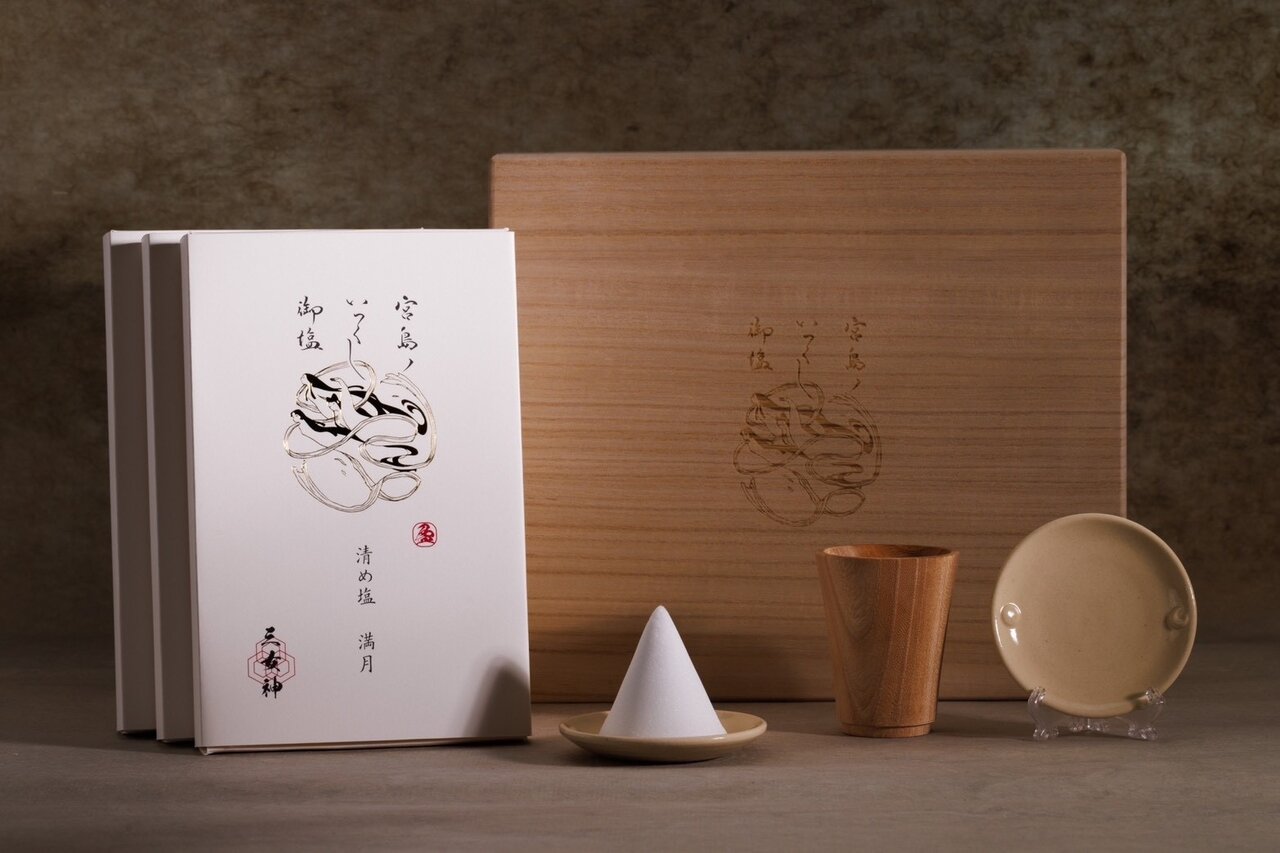 宮島ノ
いつくし
御塩
盈
清め塩　満月
三女神
宮島ノ
いつくし
御塩